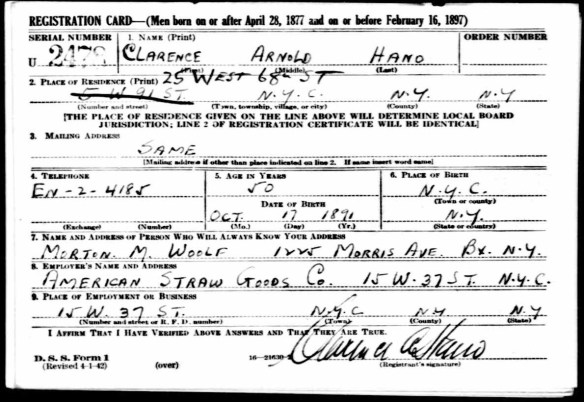 REGISTRATION CARD—(Men born on or after April 28, 1877 and on or before February 16, 1897)
SERIAL NUMBER 1. NAME (Print) ORDER NUMBER
U 2478 CLARENCE ARNOLD HANO
(First) (Middle) (Last)
2. PLACE OF RESIDENCE (Print) 25 WEST 68th ST
5 W 91 ST. N.Y.C. N.Y. N.Y
(Number and street) (Town, township, village, or city) (County) (State)
[THE PLACE OF RESIDENCE GIVEN ON THE LINE ABOVE WILL DETERMINE LOCAL BOARD
JURISDICTION; LINE 2 OF REGISTRATION CERTIFICATE WILL BE IDENTICAL]
3. MAILING ADDRESS
SAME
[Mailing address if other than place indicated on line 2. If same insert word same]
4. TELEPHONE 5. AGE IN YEARS 6. PLACE OF BIRTH
EN-2-4185 50 N.Y.C.
DATE OF BIRTH (Town or county)
OCT. 17 1891 N.Y.
(Exchange) (Number) (Mo.) (Day) (Yr.) (State or country)
7. NAME AND ADDRESS OF PERSON WHO WILL ALWAYS KNOW YOUR ADDRESS
MORTON. M. WOOLF 1225 MORRIS AVE. BX. N.Y.
8. EMPLOYER'S NAME AND ADDRESS
AMERICAN STRAW GOODS CO. 15 W. 37 ST. N.Y.C.
9. PLACE OF EMPLOYMENT OR BUSINESS
15 W. 37 ST. N.Y.C N.Y N.Y
(Number and street or R. F. D. number) (Town) (County) (State)
I AFFIRM THAT I HAVE VERIFIED ABOVE ANSWERS AND THAT THEY ARE TRUE.
D. S. S. Form 1 16—21630-2 Clarence A. Hano
(Revised 4-1-42) (over) (Registrant's signature)